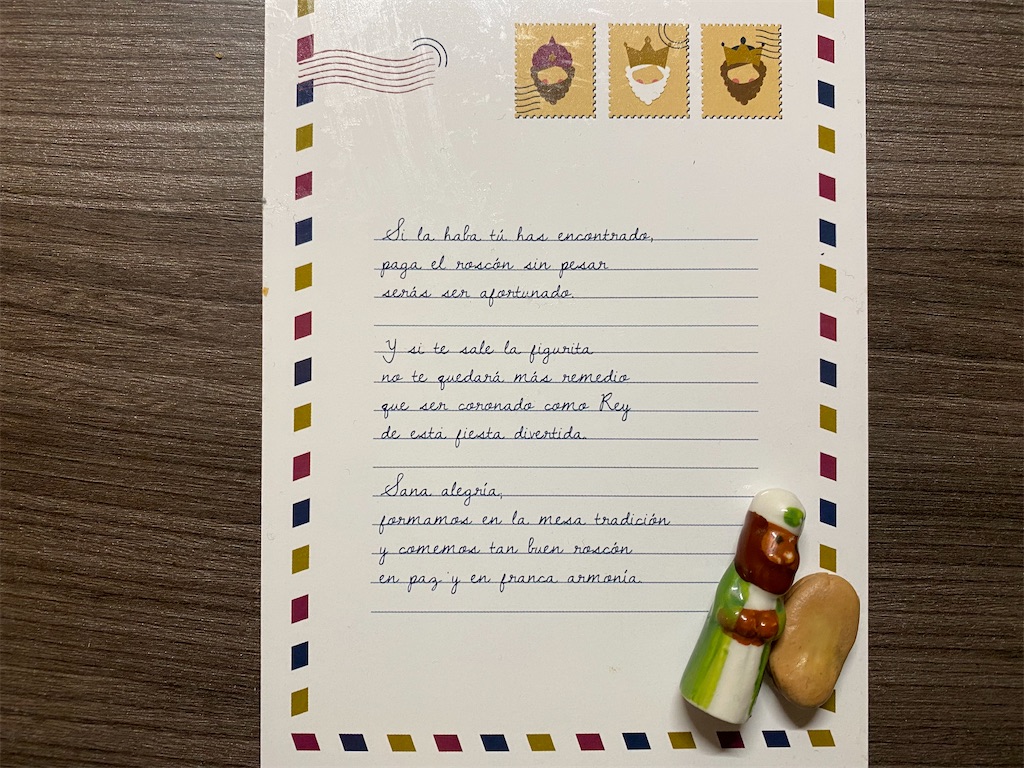 Si la haba tú has encontrado,
paga el roscón sin pesar
serás ser afortunado.
Y si te sale la figurita
no te quedará más remedio
que ser coronado como Rey
de esta fiesta divertida.
Sana alegría,
formamos en la mesa tradición
y comemos tan buen roscón
en paz y en franca armonía.